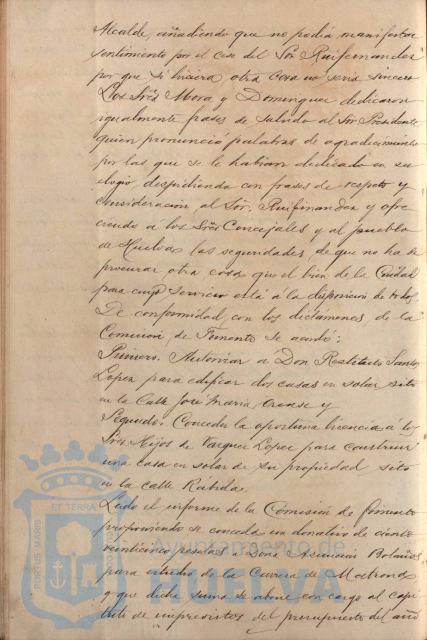 Alcalde, añadiendo que no podia manifestar
sentimiento por el cese del Sor Ruifernandez
por que si hiciera otra cosa no seria sincero
Los Sres Mora y Dominguez dedicaron
igualmente frases de saludo al Sor Presidente
quien pronunció palabras de agradecimiento
por las que se le habian dedicado en su
elogio despidiendo con frases de respeto y
consideracion al Sor. Ruifernandez y ofre
ciendo á los Sres Concejales y al pueblo
de Huelva las seguridades de que no ha de
procurar otra cosa que el bien de la Ciudad
para cuyo servicio está á la disposicion de todos.
De conformidad con los dictámenes de la
Comision de Fomento se acordó:
Primero. Autorizar á Don Restituto Santos
Lopez para edificar dos casas en solar sito
en la Calle José Maria Orense y
Segundo: Conceder la oportuna licencia á los
Sres Hijos de Vazquez Lopez para construir
una casa en solar de su propiedad sito
en la calle Rábida.
Leido el informe de la Comision de fomento
proponiendo se conceda un donativo de ciento
veinticinco pesetas á Doña Asuncion Bolaños
para estudio de la Carrera de Matrona
y que dicha suma se abone con cargo al capi
tulo de imprevistos del presupuesto del año
PORTUS MARIS ET TERRAE
Ayuntamiento de
HUELVA